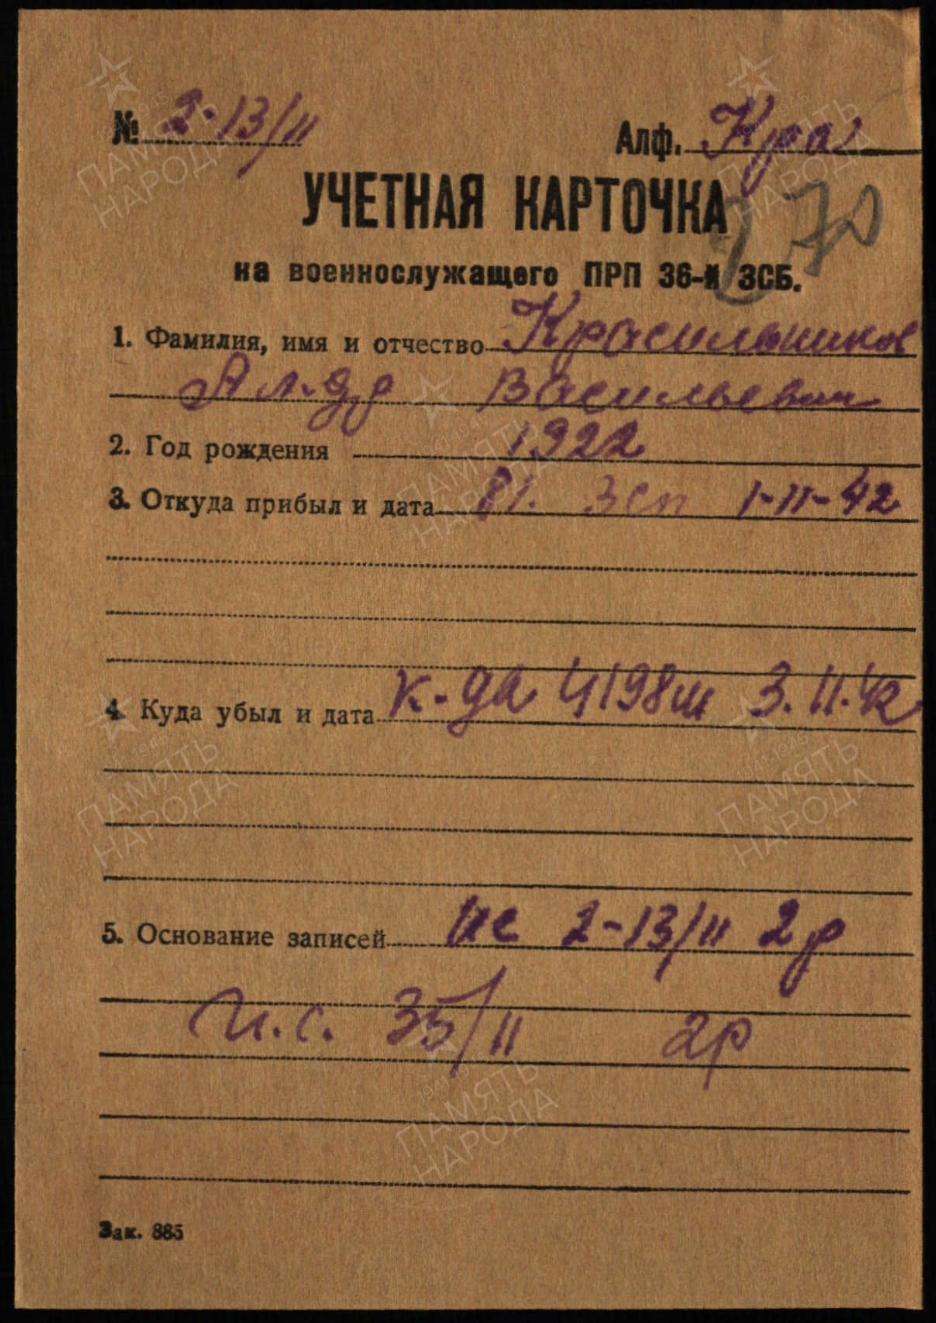 № 2-13/11 Алф. Кра
УЧЕТНАЯ КАРТОЧКА
370
на военнослужащего ПРП 36-й ЗСБ.
1. Фамилия, имя и отчество Красильников
Ал-др Васильевич
2. Год рождения 1922
3. Откуда прибыл и дата 81. Зсп 1-11-42
4. Куда убыл и дата к-да 4198ш 3.11.42
5. Основание записей ис 2-13/11 2р
И.с. 35/11 2р
Зак. 885
ПАМЯТЬ
НАРОДА